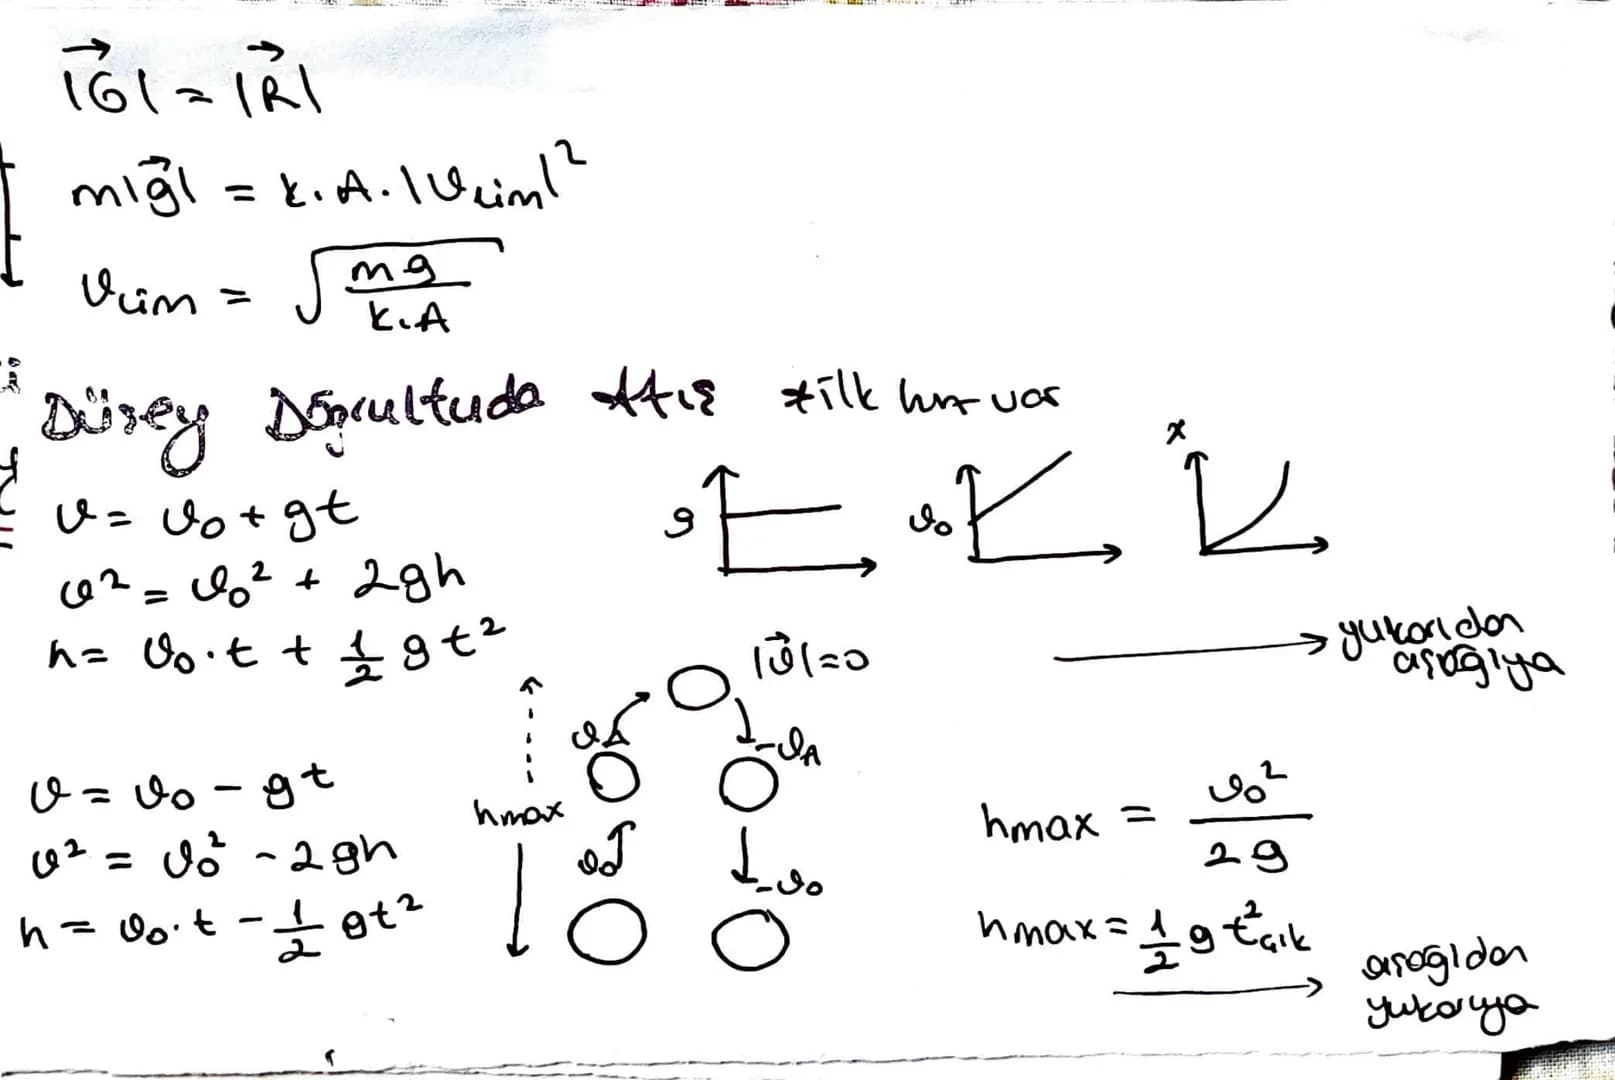 |G⃗| = |R⃗|
m|g⃗| = k.A.|ϑlim|²
ϑlim = √(mg / k.A)
Düşey Doğrultuda Atış *ilk hız var
ϑ = ϑ₀ + gt
ϑ² = ϑ₀² + 2gh
h = ϑ₀.t + 1/2 gt²
g ϑ₀ x
yukarıdan
aşağıya
|ϑ⃗|=0
ϑA -ϑA
hmax
ϑ₀ -ϑ₀
ϑ = ϑ₀ - gt
ϑ² = ϑ₀² - 2gh
h = ϑ₀.t - 1/2 gt²
hmax = ϑ₀² / 2g
hmax = 1/2 g t²çık
aşağıdan
yukarıya